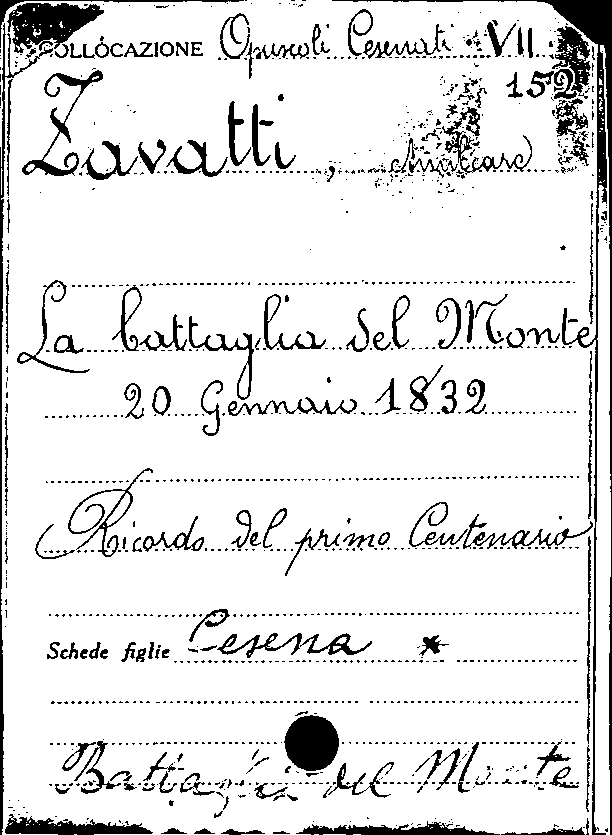 COLLOCAZIONE Opuscoli Cesenati VII
152
Zavatti, Amilcare
La battaglia del Monte
20 Gennaio 1832
Ricordo del primo Centenario
Schede figlie Cesena *
Battaglia del Monte